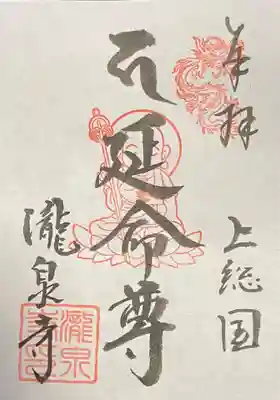 奉拝
上総国
延命尊
瀧泉寺
瀧泉